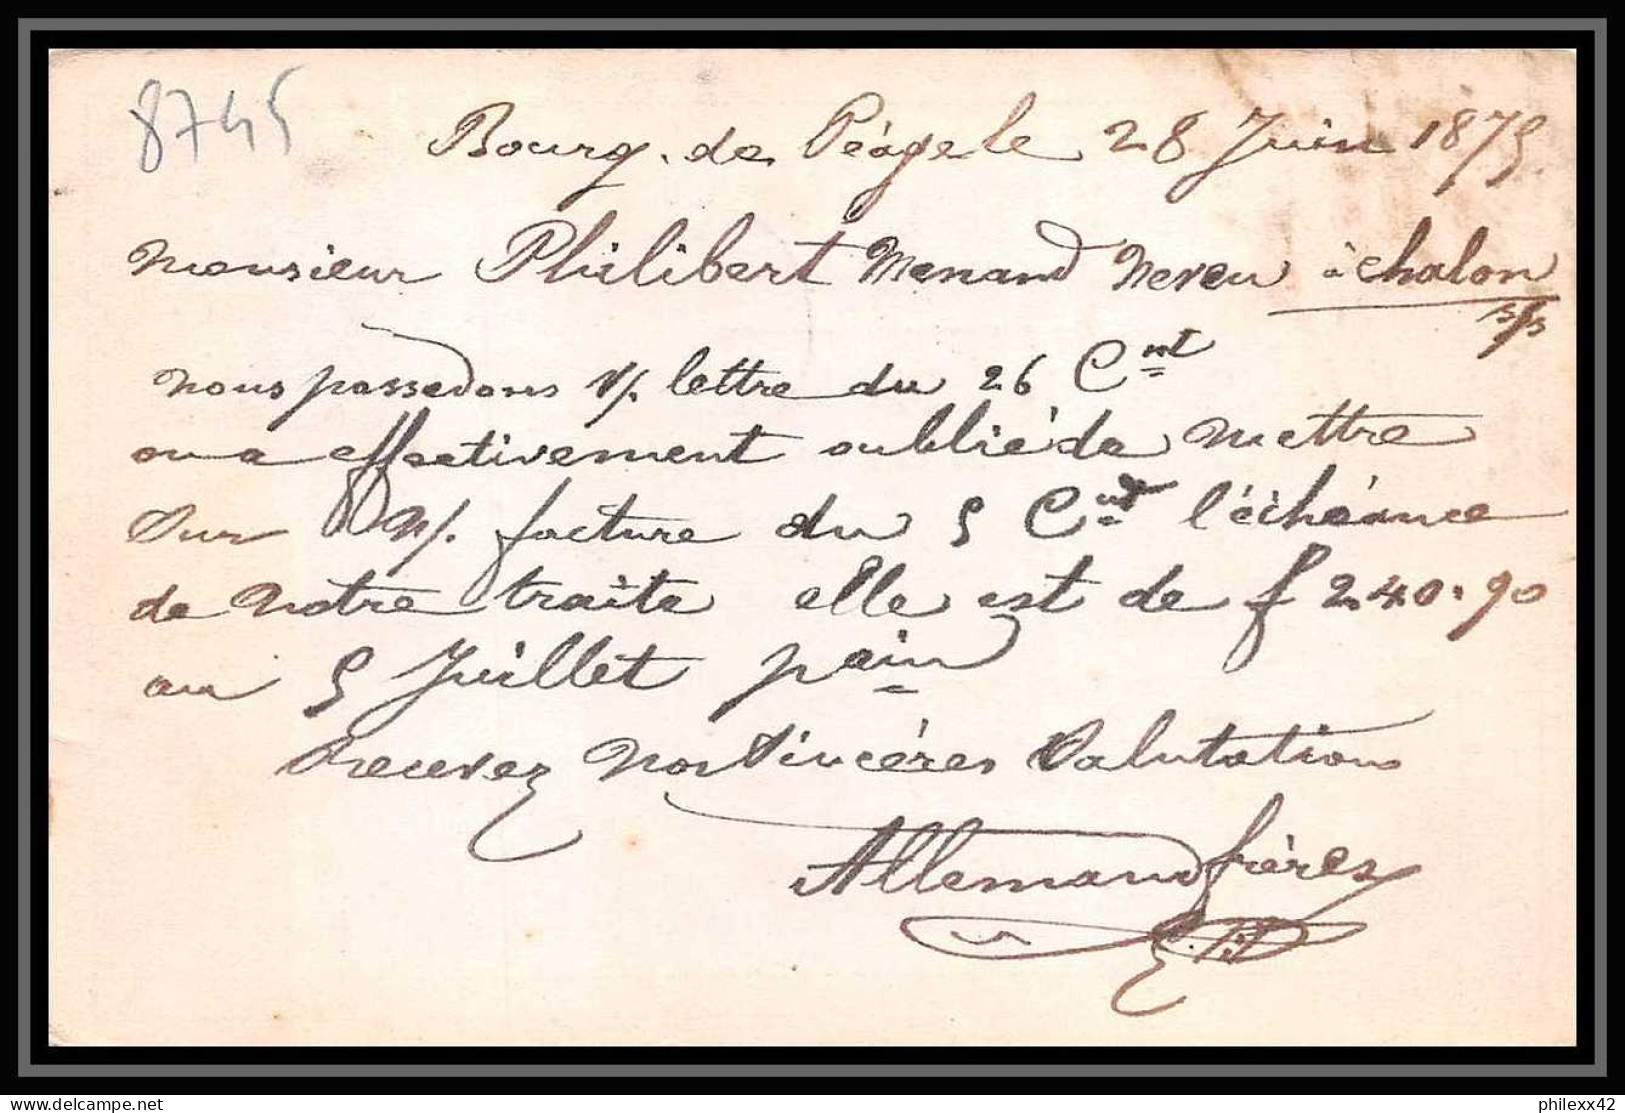 8745
Bourg. de Péage le 28 Juin 1875
Monsieur Philibert Menand Neveu à chalon
s/s
nous possedons v/. lettre du 26 Cnt
on a effectivement oublié de mettre
Sur n/. facture du 5 Cnt l'échéance
de notre traite elle est de f 240.90
au 5 Juillet pain
recevez nos Sincéres Salutations
Allemand frères
philexx42